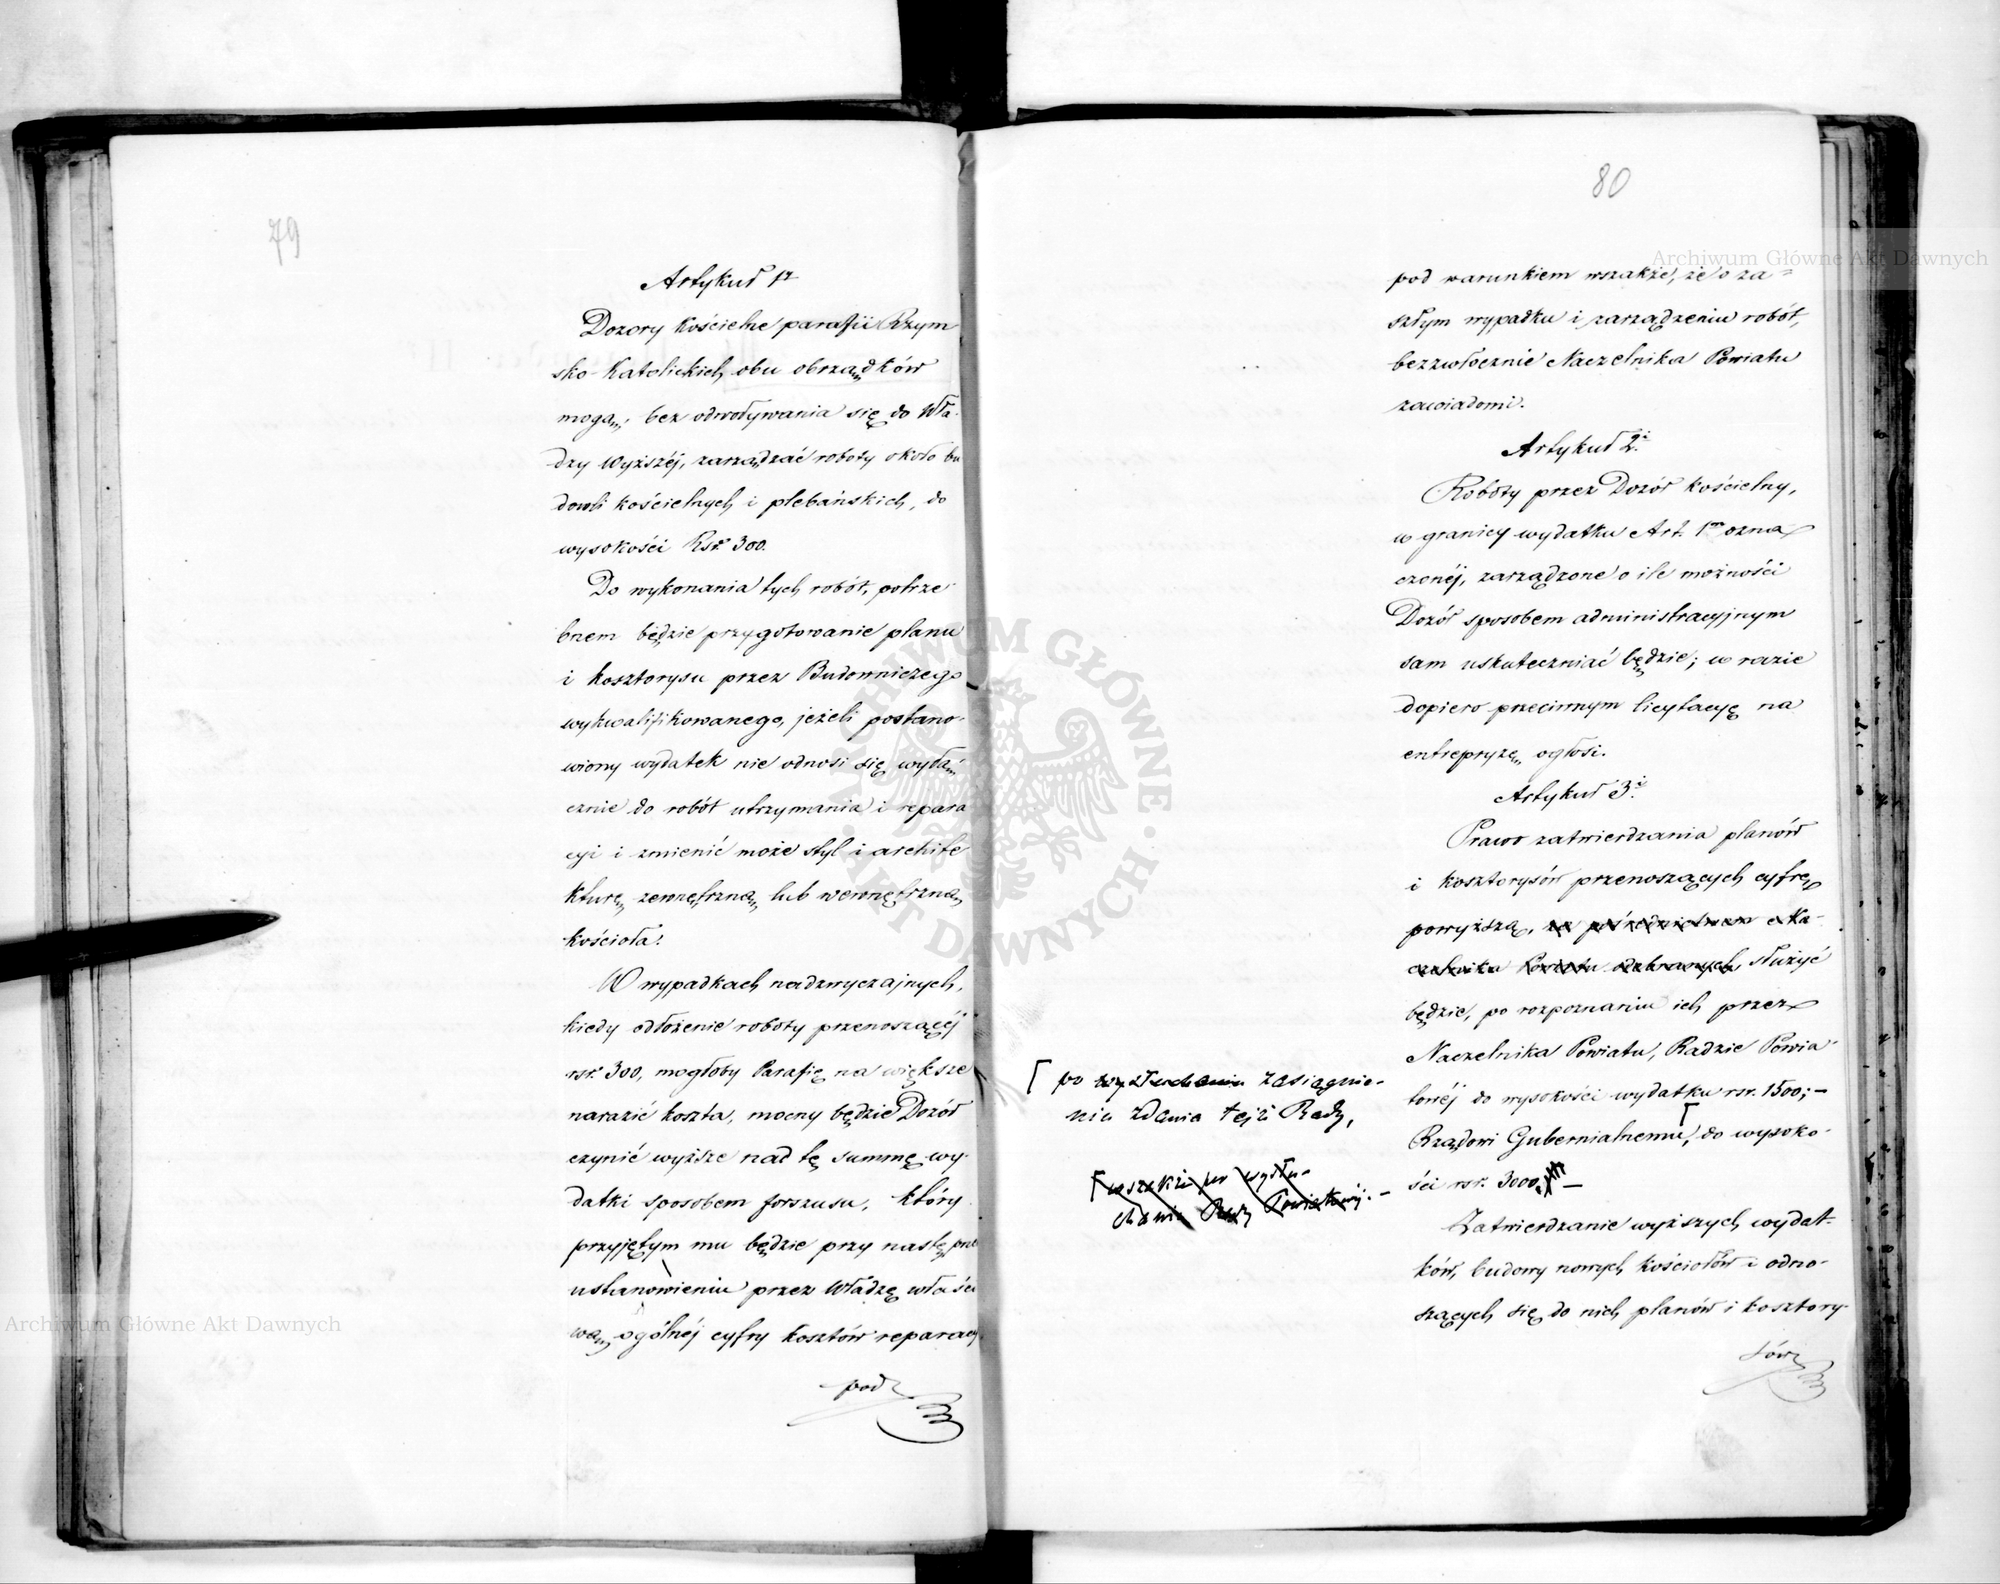 79
Artykuł 1y
Dozory Kościelne parafii Rzym
sko-Katolickich obu obrządków
mogą, bez odwoływania się do Wła-
dzy Wyższéj, zarządzać roboty około bu
dowli kościelnych i plebańskich, do
wysokości Rsr. 300.
Do wykonania tych robót, potrze
bnem będzie przygotowanie planu
i kosztorysu przez Budowniczego
wykwalifikowanego, jeżeli postano-
wiony wydatek nie odnosi się wyłą-
cznie do robót utrzymania i repara
cyi i zmienić może styl i archite
kturę zewnętrzną lub wewnętrzną
kościoła.
W wypadkach nadzwyczajnych,
kiedy odłożenie roboty przenoszącéj
rsr. 300, mogłoby Parafię na większe
narazić koszta, mocny będzie Dozór
czynić wyższe nad tę summę wy-
datki sposobem forszusu, który
przyjętym mu będzie przy nastę pne
ustanowieniu przez Władzę właści
wą ogólnéj cyfry kosztów reparacy
pod
80
pod warunkiem wszakże, że o za=
szłym wypadku i zarządzeniu robót,
bezzwłocznie Naczelnika Powiatu
zawiadomi.
Artykuł 2i.
Roboty przez Dozór kościelny,
w granicy wydatku Art. 1m ozna
czonéj, zarządzone o ile możności
Dozór sposobem administracyjnym
sam uskuteczniać będzie; w razie
dopiero przeciwnym licytacyę na
entrepryzę ogłosi.
Artykuł 3i.
Prawo zatwierdzania planów
i kosztorysów przenoszących cyfrę
powyższą, za pośrednictwem Na-
czelnika Powiatu odebranych, służyć
będzie, po rozpoznaniu ich przez
Naczelnika Powiatu, Radzie Powia-
towéj do wysokości wydatku rsr. 1500;-
Rządowi Gubernialnemu, do wysoko-
ści rsr. 3000. -
Zatwierdzanie wyższych wydat-
ków, budowy nowych kościołów i odno-
szących się do nich planów i kosztory-
sów
po wysłuchaniu zasiągnie-
niu zdania tejże Rady,
wszakże po wysłu-
chaniu Rady Powiatowéj. -
ARCHIWUM GŁÓWNE AKT DAWNYCH
Archiwum Główne Akt Dawnych
Archiwum Główne Akt Dawnych